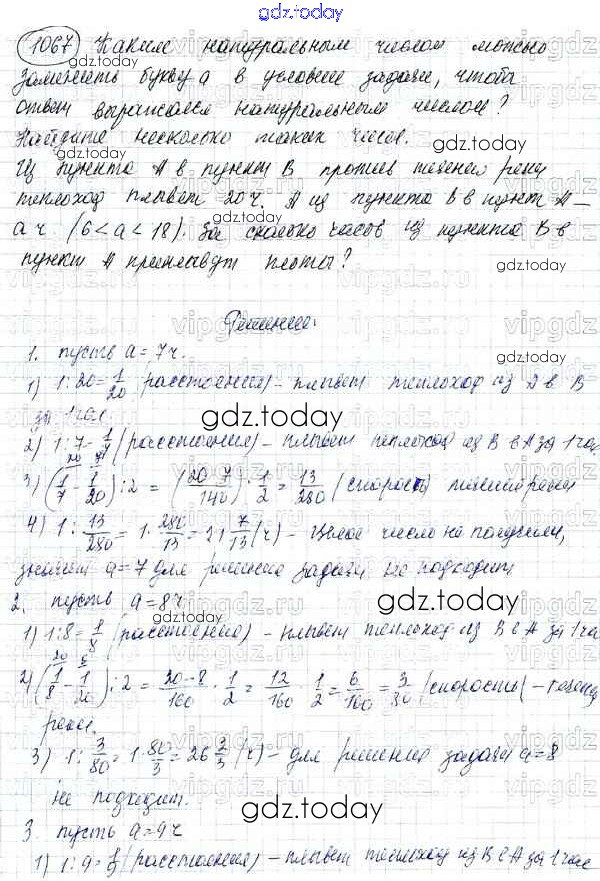 gdz.today
1067 Каким натуральным числом можно
gdz.today
заменить букву а в условии задачи, чтобы
ответ выражался натуральным числом?
Найдите несколько таких чисел.
gdz.today
gdz.today
Из пункта А в пункт В против течения реки
теплоход плывет 20 ч. А из пункта В в пункт А –
gdz.today
а ч (6 < а < 18). За сколько часов из пункта В в
пункт А приплывут плоты?
gdz.today
Решение:
1. пусть а = 7 ч.
gdz.today
1) 1 : 20 = 1/20 (расстояния) – плывет теплоход из А в В
за 1 час.
gdz.today
2) 1 : 7 = 1/7 (расстояния) – плывет теплоход из В в А за 1 час
3) (1/7 - 1/20) : 2 = (20-7/140) · 1/2 = 13/280 (скорость) течения реки
4) 1 : 13/280 = 1 · 280/13 = 21 7/13 (ч) – целое число не получили,
значит а = 7 для решения задачи не подходит
gdz.today
2. пусть а = 8 ч
1) 1 : 8 = 1/8 (расстояния) – плывет теплоход из В в А за 1 час
2) (1/8 - 1/20) : 2 = 20-8/160 · 1/2 = 12/160 · 1/2 = 6/160 = 3/80 (скорость) – течения
реки.
gdz.today
3) 1 : 3/80 = 1 · 80/3 = 26 2/3 (ч) – для решения задачи а = 8
не подходит.
gdz.today
3. пусть а = 9 ч
1) 1 : 9 = 1/9 (расстояния) – плывет теплоход из В в А за 1 час